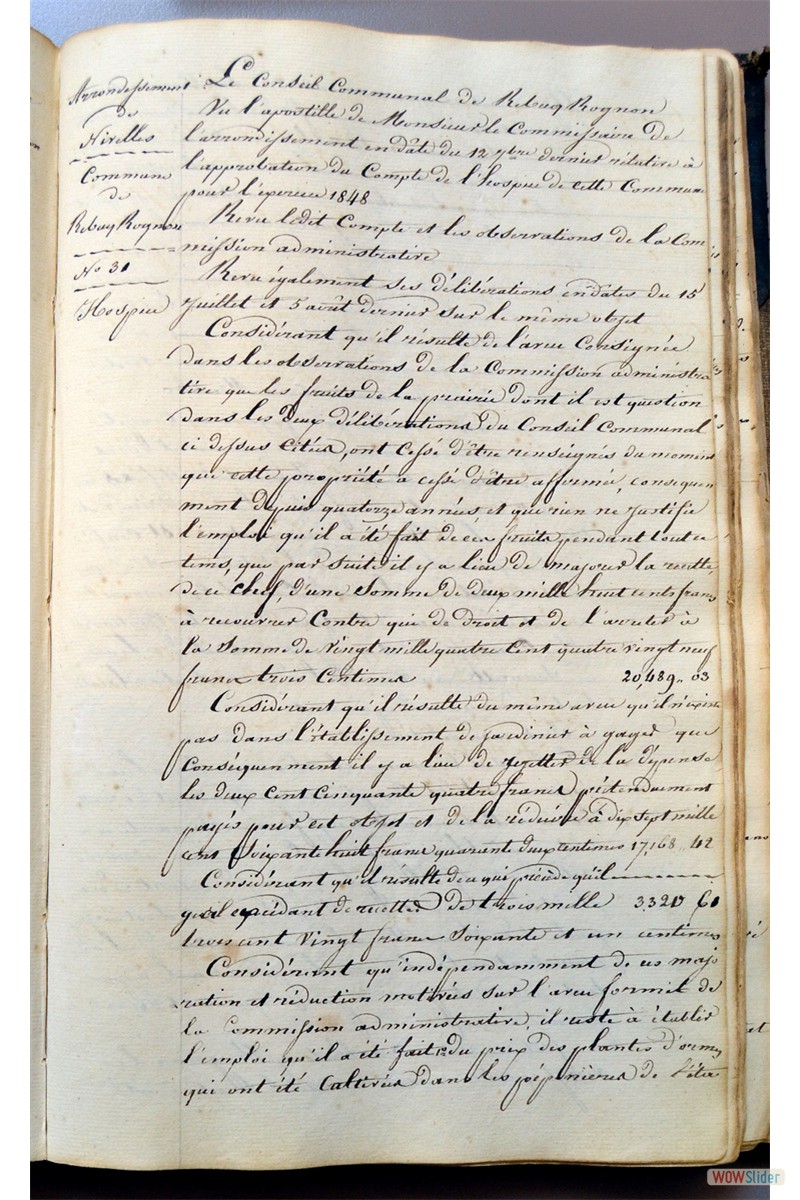 Arrondissement
de
Nivelles
Commune
de
Rebecq Rognon
No 31
Hospice
Le Conseil Communal de Rebecq Rognon
Vu l'apostille de Monsieur le Commissaire de
l'arrondissement en date du 12 7bre dernier rélative à
l'approbation du Compte de l'hospice de cette Commune
pour l'exercice 1848
Revu ledit Compte et les observations de la Com
mission administrative
Revu également ses délibérations en dates du 15
Juillet et 5 août dernier sur le même objet
Considérant qu'il résulte de l'aveu Consigné
dans les observations de la Commission administra
tive que les fruits de la prairie dont il est question
dans les deux délibérations du Conseil Communal
ci dessus citées, ont cessé d'être renseignés du moment
que cette propriété a cessé d'être affermée, conséquem
ment depuis quatorze années, et que rien ne justifie
l'emploi qu'il a été fait de ces fruits pendant tout ce
tems, que par suite il y a lieu de majorer la recette,
de ce chef, d'une somme de deux mille huit cents francs
à recouvrer Contre qui de droit et de l'arreter à
la somme de vingt mille quatre Cent quatre vingt neuf
francs trois Centimes 20,489,, 03
Considérant qu'il résulte du même aveu qu'il n'existe
pas dans l'établissement de jardinier à gages que
Conséquemment il y a lieu de rejetter de la dépense
les deux Cent Cinquante quatre francs prétendument
payés pour cet objet et de la réduire à dix sept mille
cent soixante huit francs quarante deux centimes 17,168 42
Considérant qu'il résulte de ce qui précède qu'il
y a excédant de recettes de trois mille 3320 61
trois cent vingt francs soixante et un centimes
Considérant qu'indépendamment de ces majo
ration et réduction motivées sur l'aveu formel de
la Commission administrative, il reste à établir
l'emploi qu'il a été fait du prix des plantes d'ormes
qui ont été Cultivées dans les pépinières de l'éta
WOWSlider